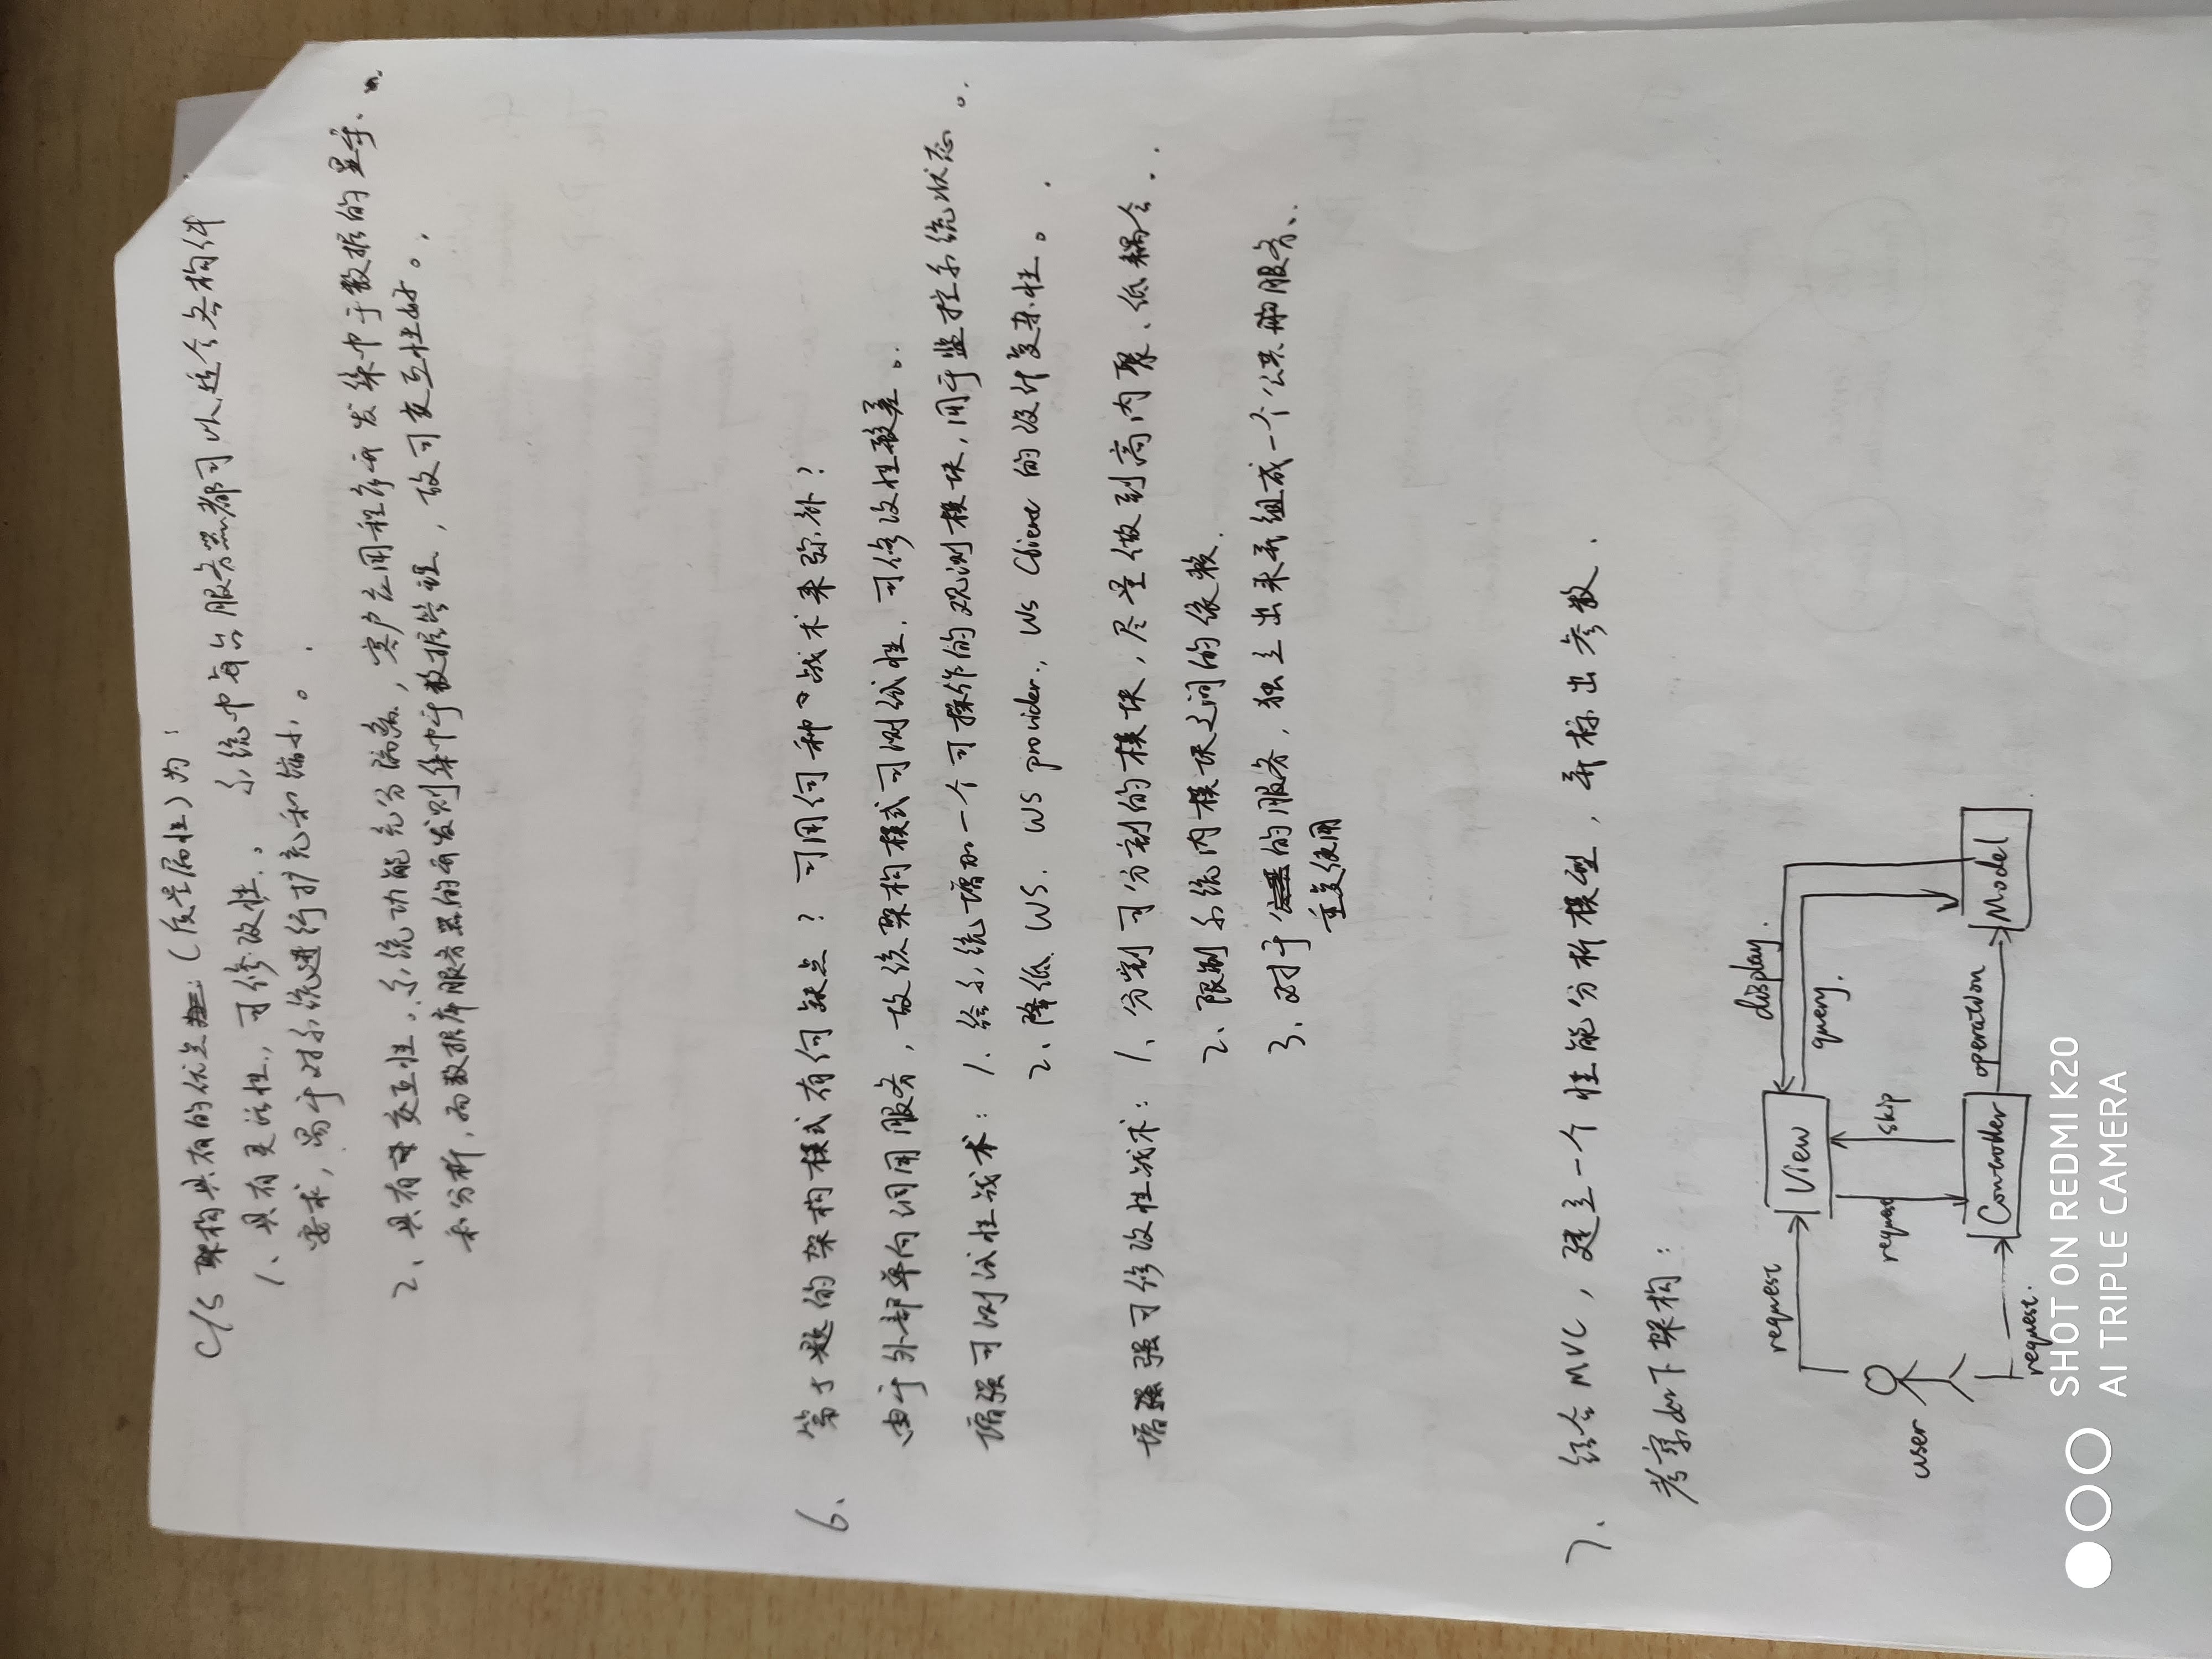 C/S 架构具有的优点(质量属性)为:
1、具有灵活性,可修改性。系统中每台服务器都可以适合各构件
要求,易于对系统进行扩充和缩小。
2、具有交互性。系统功能充分隔离,客户应用程序开发集中于数据的显示、
和分析,而数据库服务器的开发则集中于数据管理,故可交互性好。
6、第5题的架构模式有何缺点?可用何种战术来弥补?
由于外部单向调用服务,故统架构模式可测试性、可修改性较差。
增强可测试性战术:1、给系统增加一个可操作的观测模块,用于监控系统状态。
2、降低 WS、WS provider、WS Client 的设计复杂性。
增强可修改性战术:1、分割可分割的模块,尽量做到高内聚、低耦合.
2、限制系统内模块之间的依赖.
3、对于的服务,独立出来并组成一个公共的服务、
重复使用
7、结合MVC,建立一个性能分析模型,并标出参数.
考察如下架构:
display.
request
View
query.
request
skip
user
Controller
operation
Model
request.
SHOT ON REDMI K20
AI TRIPLE CAMERA